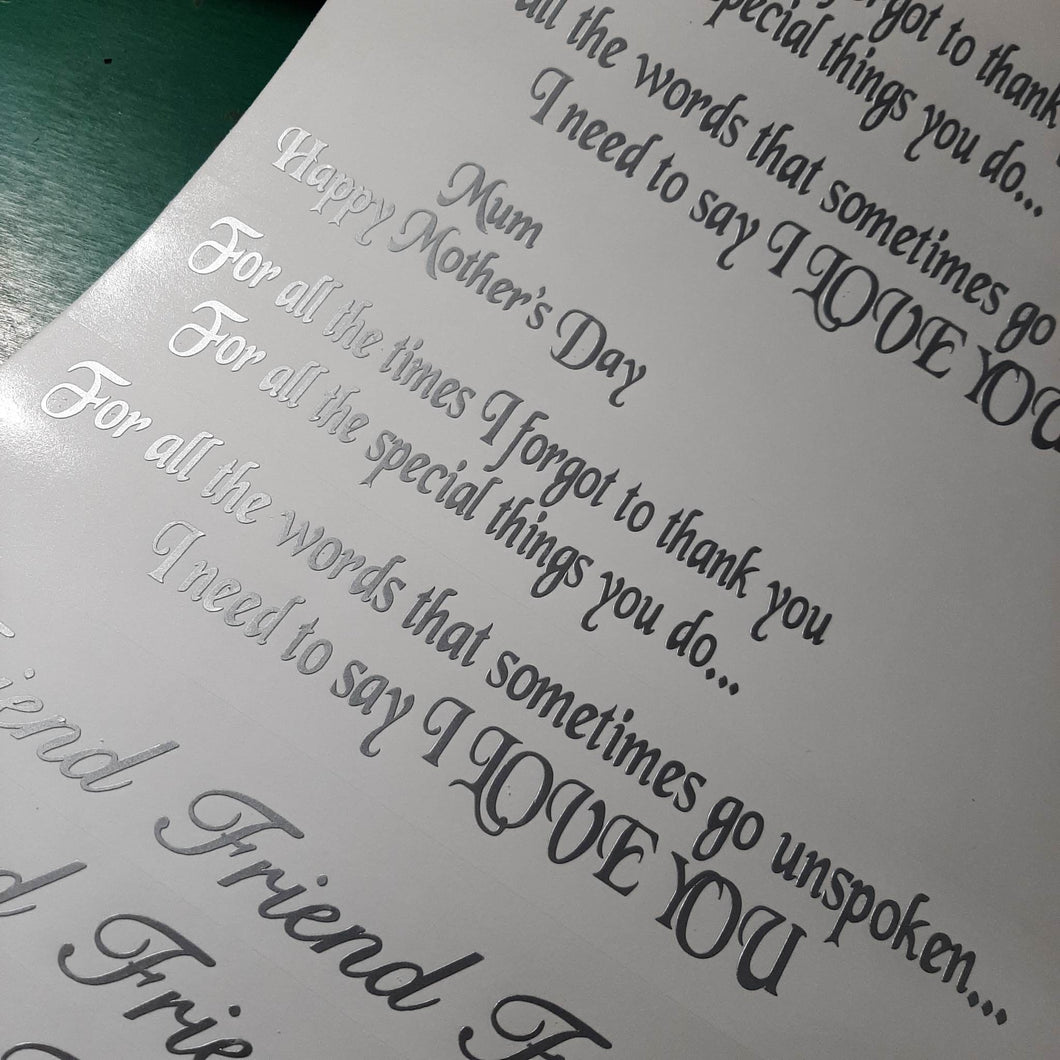 forgot to thank
special things you do...
all the words that sometimes go
I need to say I LOVE YOU
Mum
Happy Mother's Day
For all the times I forgot to thank you
For all the special things you do...
For all the words that sometimes go unspoken...
I need to say I LOVE YOU
Friend Friend
Friend